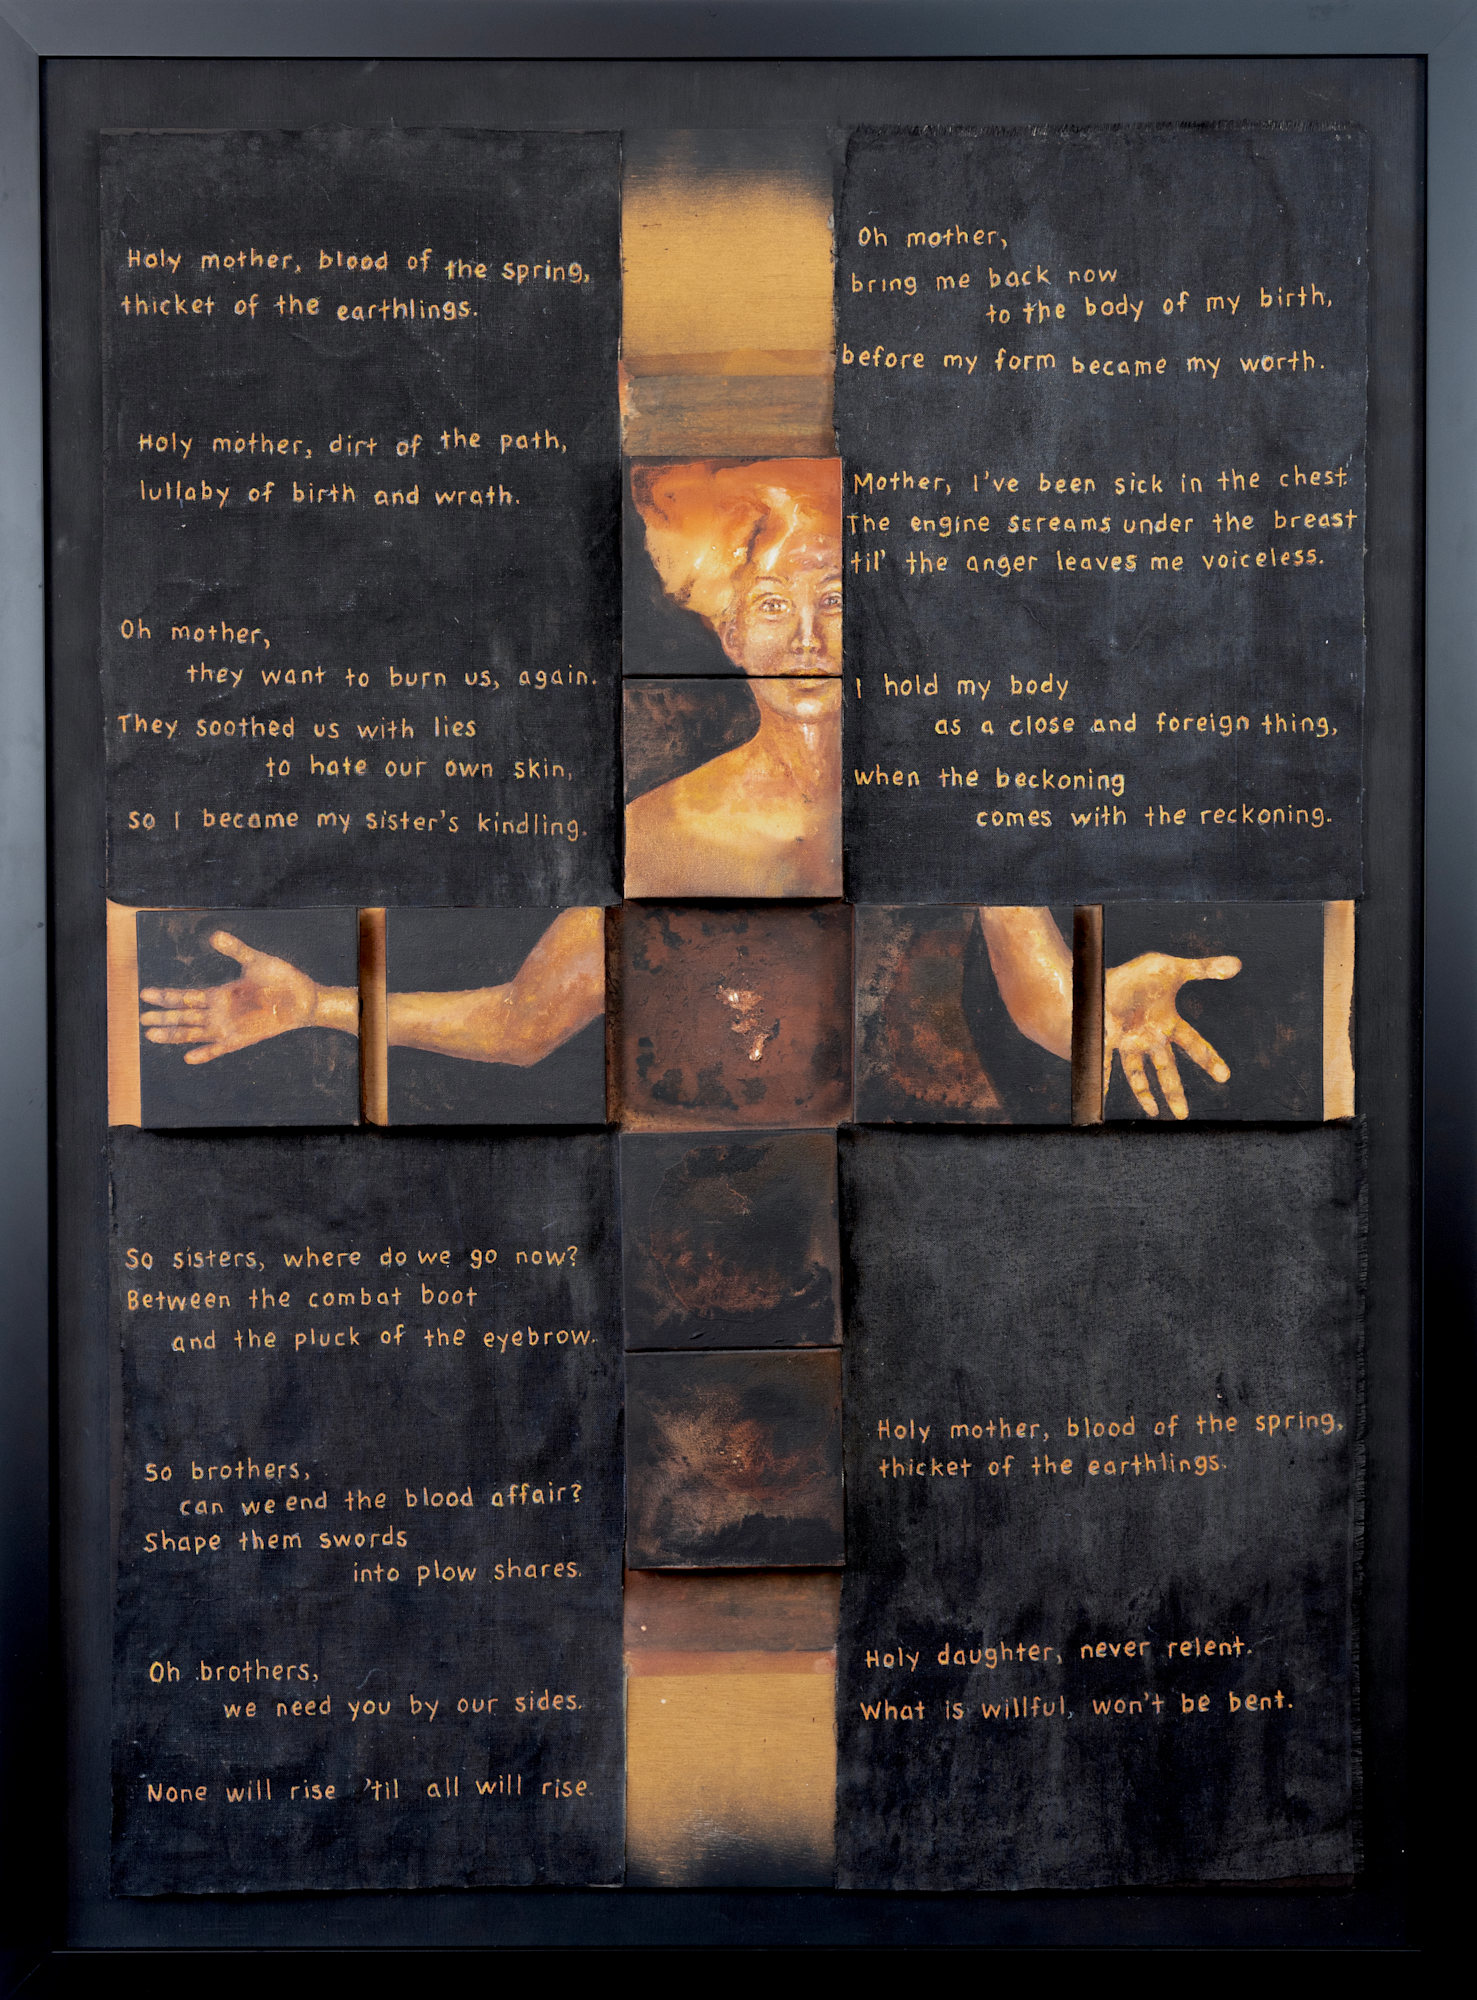 Holy mother, blood of the spring,
thicket of the earthlings.
Holy mother, dirt of the path,
lullaby of birth and wrath.
Oh mother,
they want to burn us, again.
They soothed us with lies
to hate our own skin,
so I became my sister's kindling.
Oh mother,
bring me back now
to the body of my birth,
before my form became my worth.
Mother, I've been sick in the chest.
The engine screams under the breast
til' the anger leaves me voiceless.
I hold my body
as a close and foreign thing,
when the beckoning
comes with the reckoning.
So sisters, where do we go now?
Between the combat boot
and the pluck of the eyebrow.
So brothers,
can we end the blood affair?
Shape them swords
into plow shares.
Oh brothers,
we need you by our sides.
None will rise 'til all will rise.
Holy mother, blood of the spring,
thicket of the earthlings.
Holy daughter, never relent.
What is willful, won't be bent.